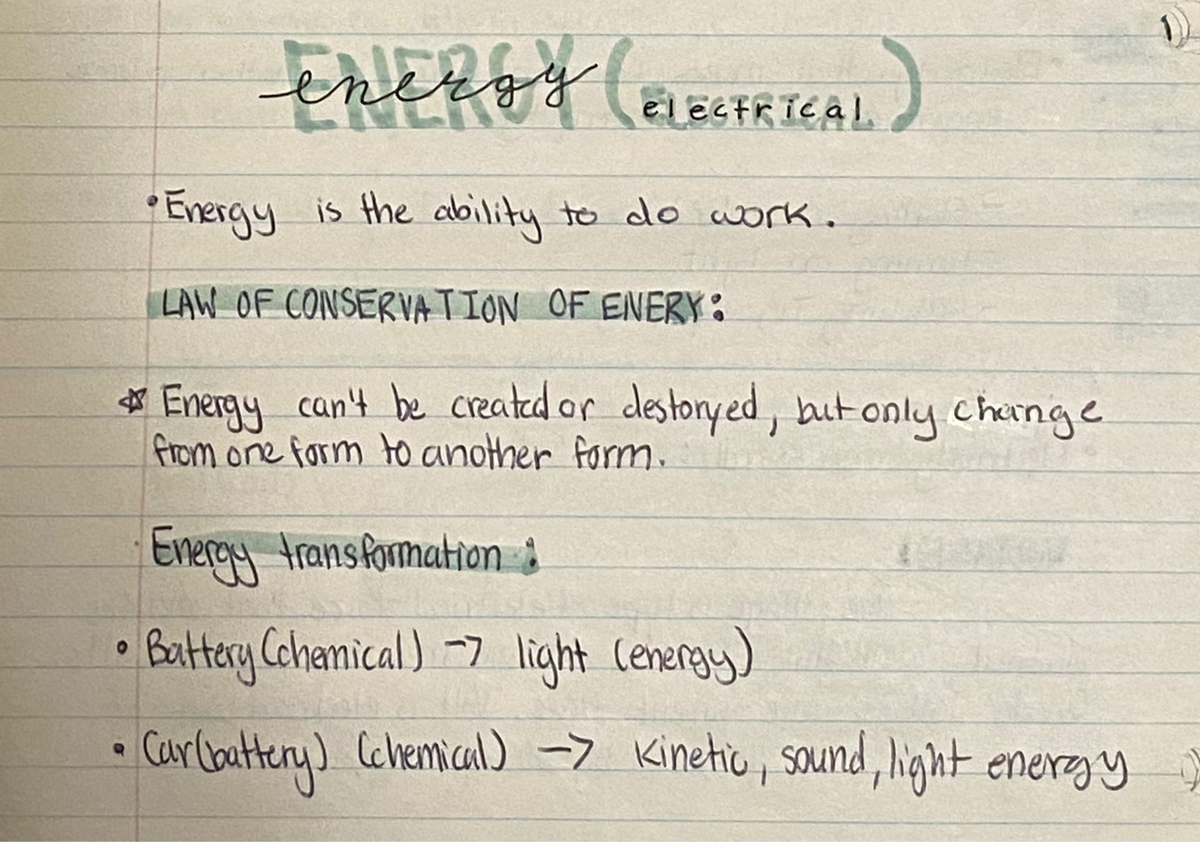 1)
energy (electrical)
• Energy is the ability to do work.
LAW OF CONSERVATION OF ENERY:
☆ Energy can't be created or destoryed, but only change
from one form to another form.
Energy transformation :
• Battery (chemical) -> light (energy)
• Car(battery) (chemical) -> kinetic, sound, light energy